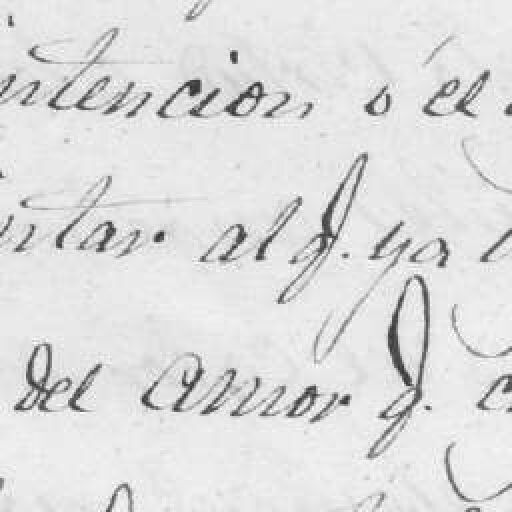 intencion ó el
ntar al q. ya
del amor q.